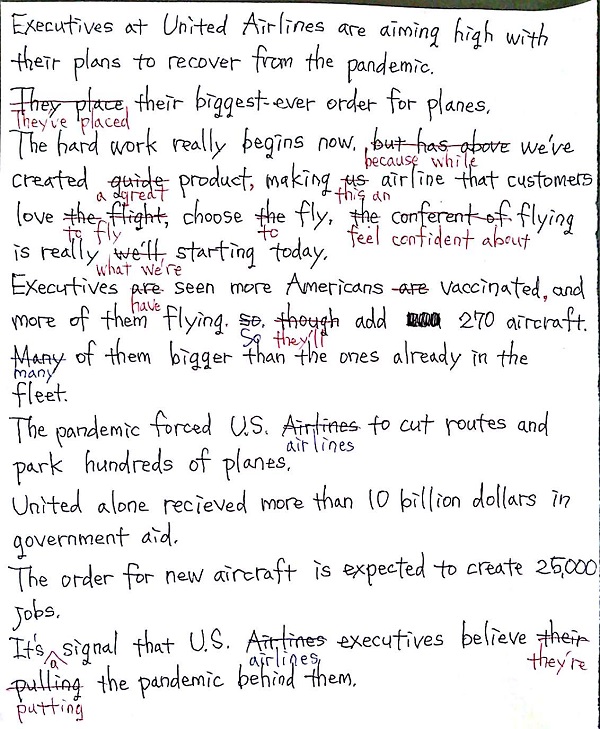 Executives at United Airlines are aiming high with
their plans to recover from the pandemic.
They place their biggest-ever order for planes.
They've placed
The hard work really begins now. but has above we've
because while
created guide product, making us airline that customers
a great this an
love the flight, choose the fly. the conferent of flying
to fly to feel confident about
is really we'll starting today.
what we're
Executives are seen more Americans are vaccinated, and
have
more of them flying. so. though add 270 aircraft.
So they'll
Many of them bigger than the ones already in the
many
fleet.
The pandemic forced U.S. Airlines to cut routes and
airlines
park hundreds of planes.
United alone recieved more than 10 billion dollars in
government aid.
The order for new aircraft is expected to create 25,000
jobs.
It's signal that U.S. Airlines executives believe their
a airlines they're
pulling the pandemic behind them.
putting